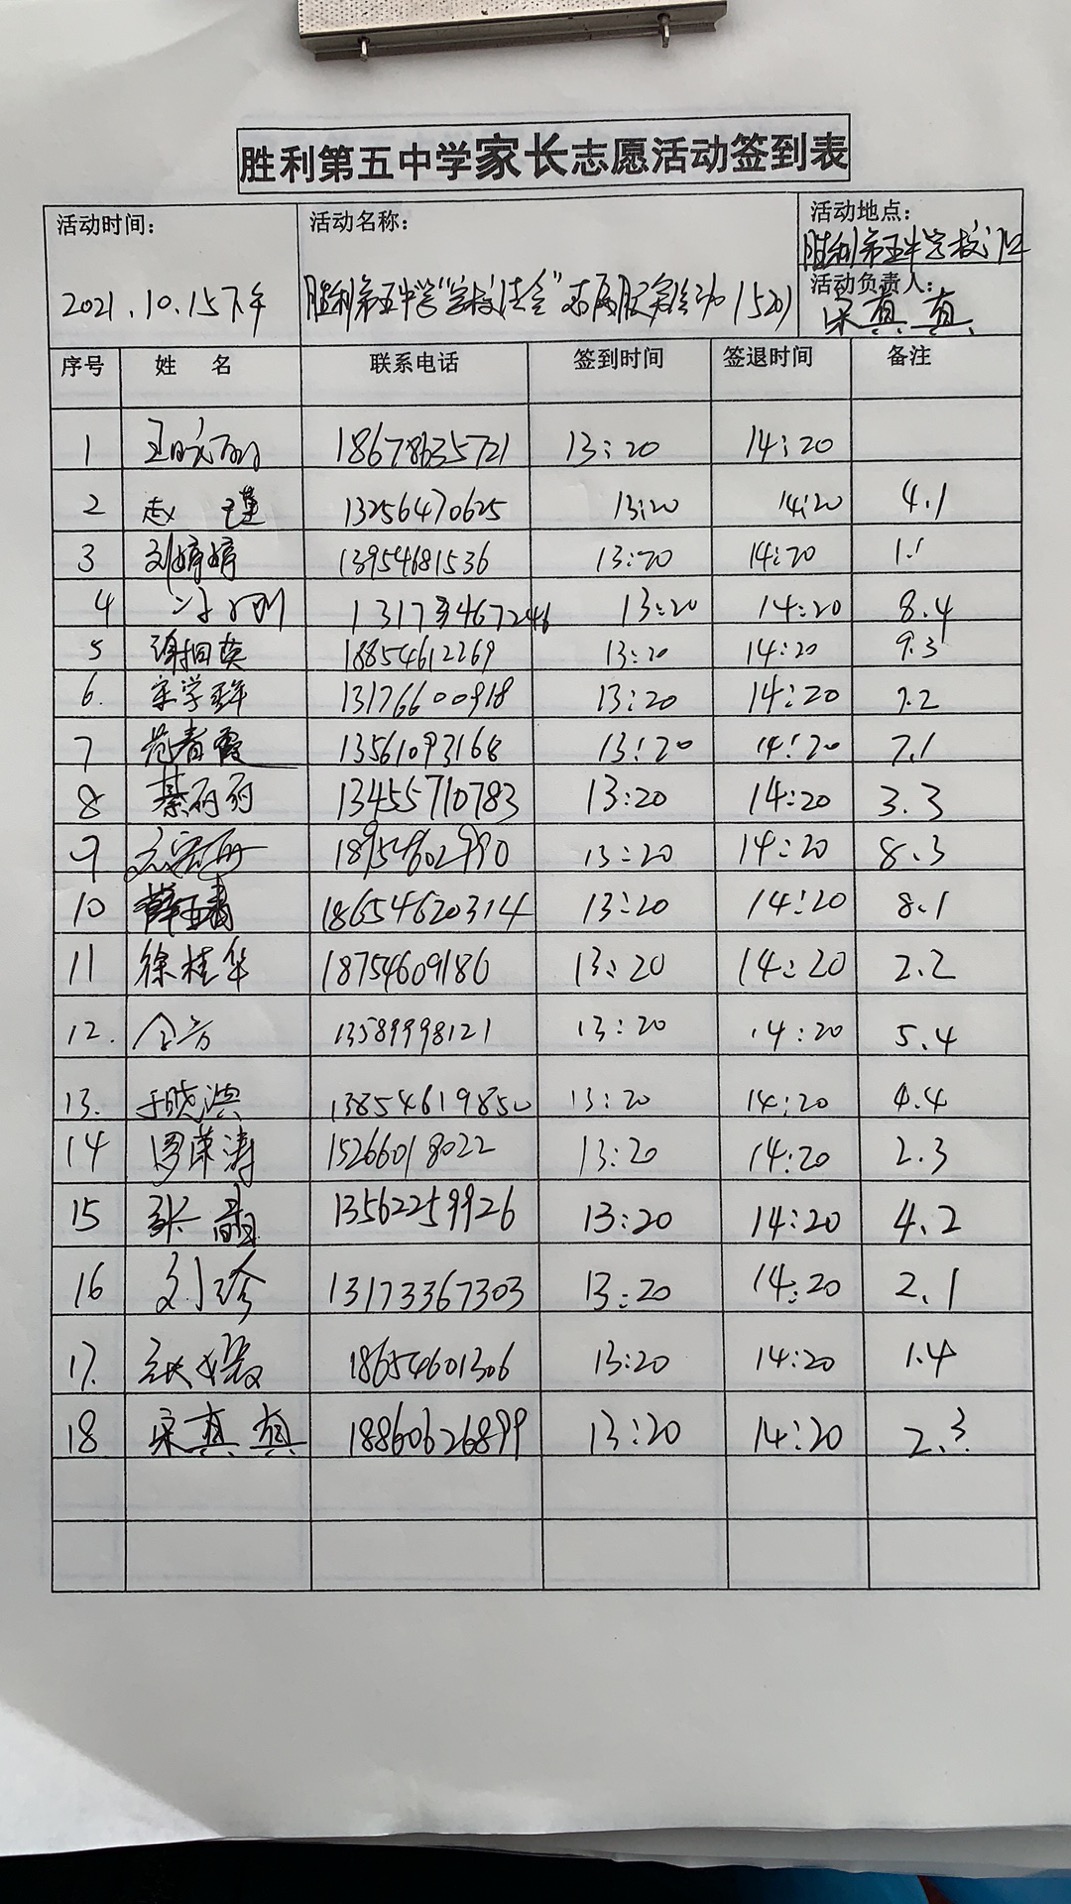 胜利第五中学家长志愿活动签到表
活动时间： 活动名称： 活动地点：
胜利第五中学校门口
2021.10.15下午 胜利第五中学"学校法会"志愿服务活动 活动负责人：
宋真真
序号 姓 名 联系电话 签到时间 签退时间 备注
1 18678635721 13:20 14:20
2 赵瑾 13256470625 13:20 14:20 4.1
3 刘婷婷 13954681536 13:20 14:20 1.1
4 13:20 14:20 8.4
5 18854612269 13:20 14:20 9.3
6. 13176600918 13:20 14:20 7.2
7 范春霞 13561093168 13:20 14:20 7.1
8 綦丽丽 13455710783 13:20 14:20 3.3
9 18954602990 13:20 14:20 8.3
10 18654620314 13:20 14:20 8.1
11 徐桂华 18754609186 13:20 14:20 2.2
12. 13589998121 13:20 14:20 5.4
13. 13854619850 13:20 14:20 4.4
14 罗荣涛 15266018022 13:20 14:20 2.3
15 张晶 13562259926 13:20 14:20 4.2
16 刘珍 13173367303 13:20 14:20 2.1
17. 18654601306 13:20 14:20 1.4
18 宋真真 18860626899 13:20 14:20 2.3